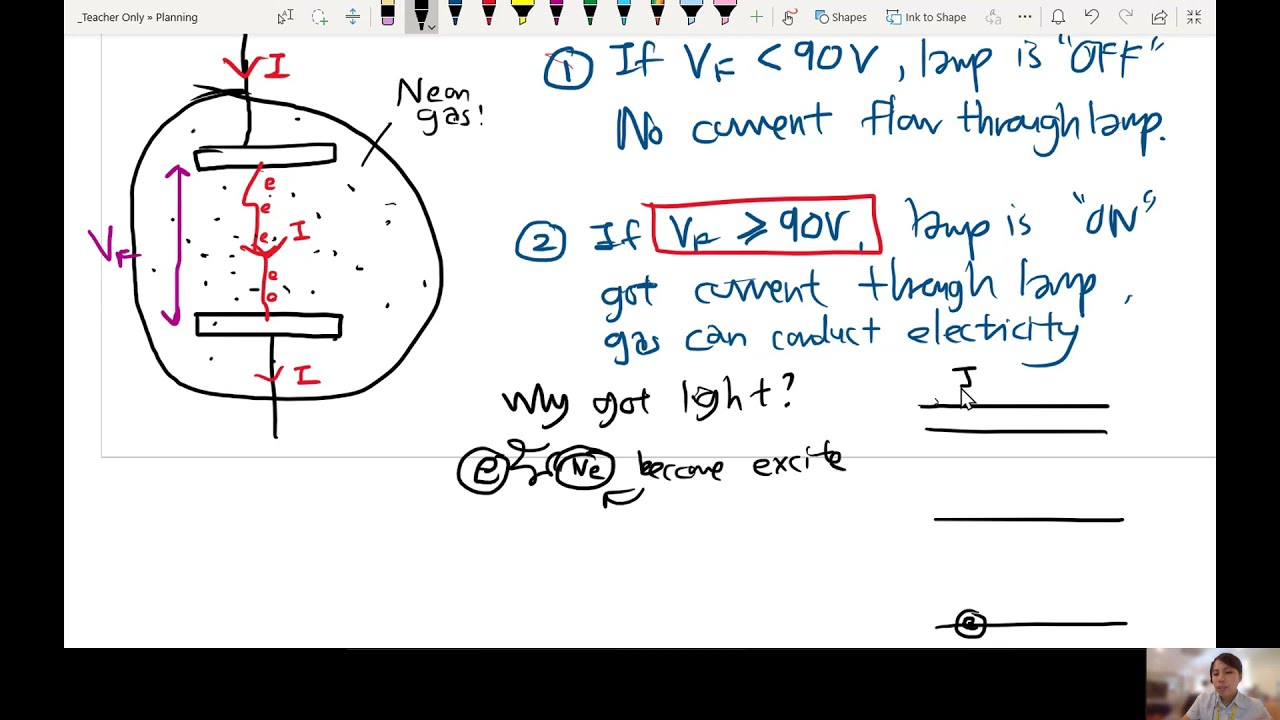 _Teacher Only » Planning
Shapes
Ink to Shape
I
Neon
gas!
① If VF < 90V, lamp is "OFF"
No current flow through lamp.
VF
e
e
e
I
e
e
I
② If VF ⩾ 90V, lamp is "ON"
got current through lamp,
gas can conduct electricity
Why got light?
e Ne become excite
e